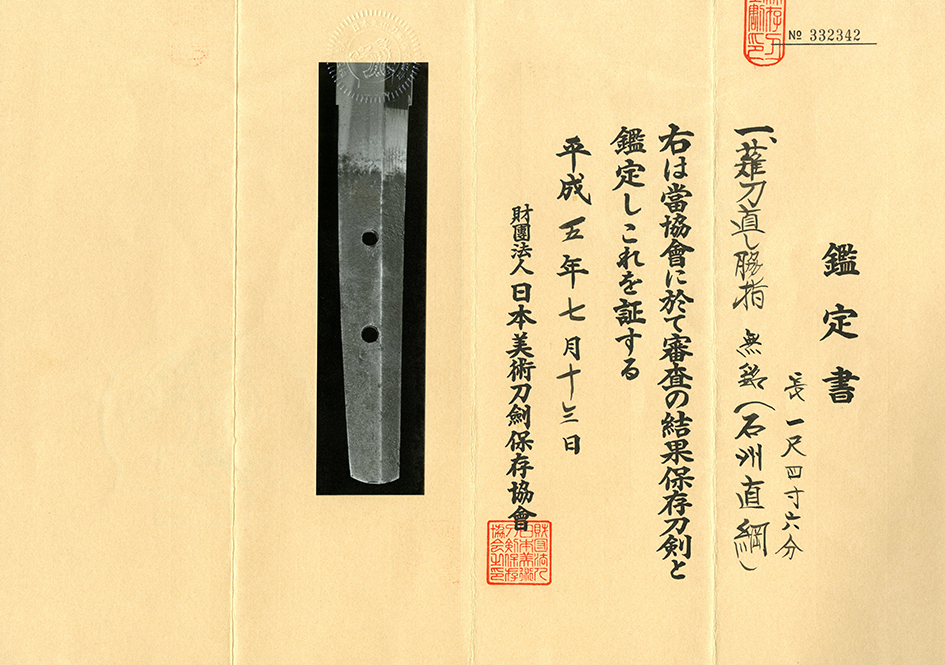 № 332342
鑑定書
長一尺四寸六分
一、薙刀直し脇指 無銘（石州直綱）
右は當協會に於て審査の結果保存刀剣と
鑑定しこれを証する
平成五年七月十三日
財團法人日本美術刀劍保存協會
財団法人日本美術刀剣保存協会之印